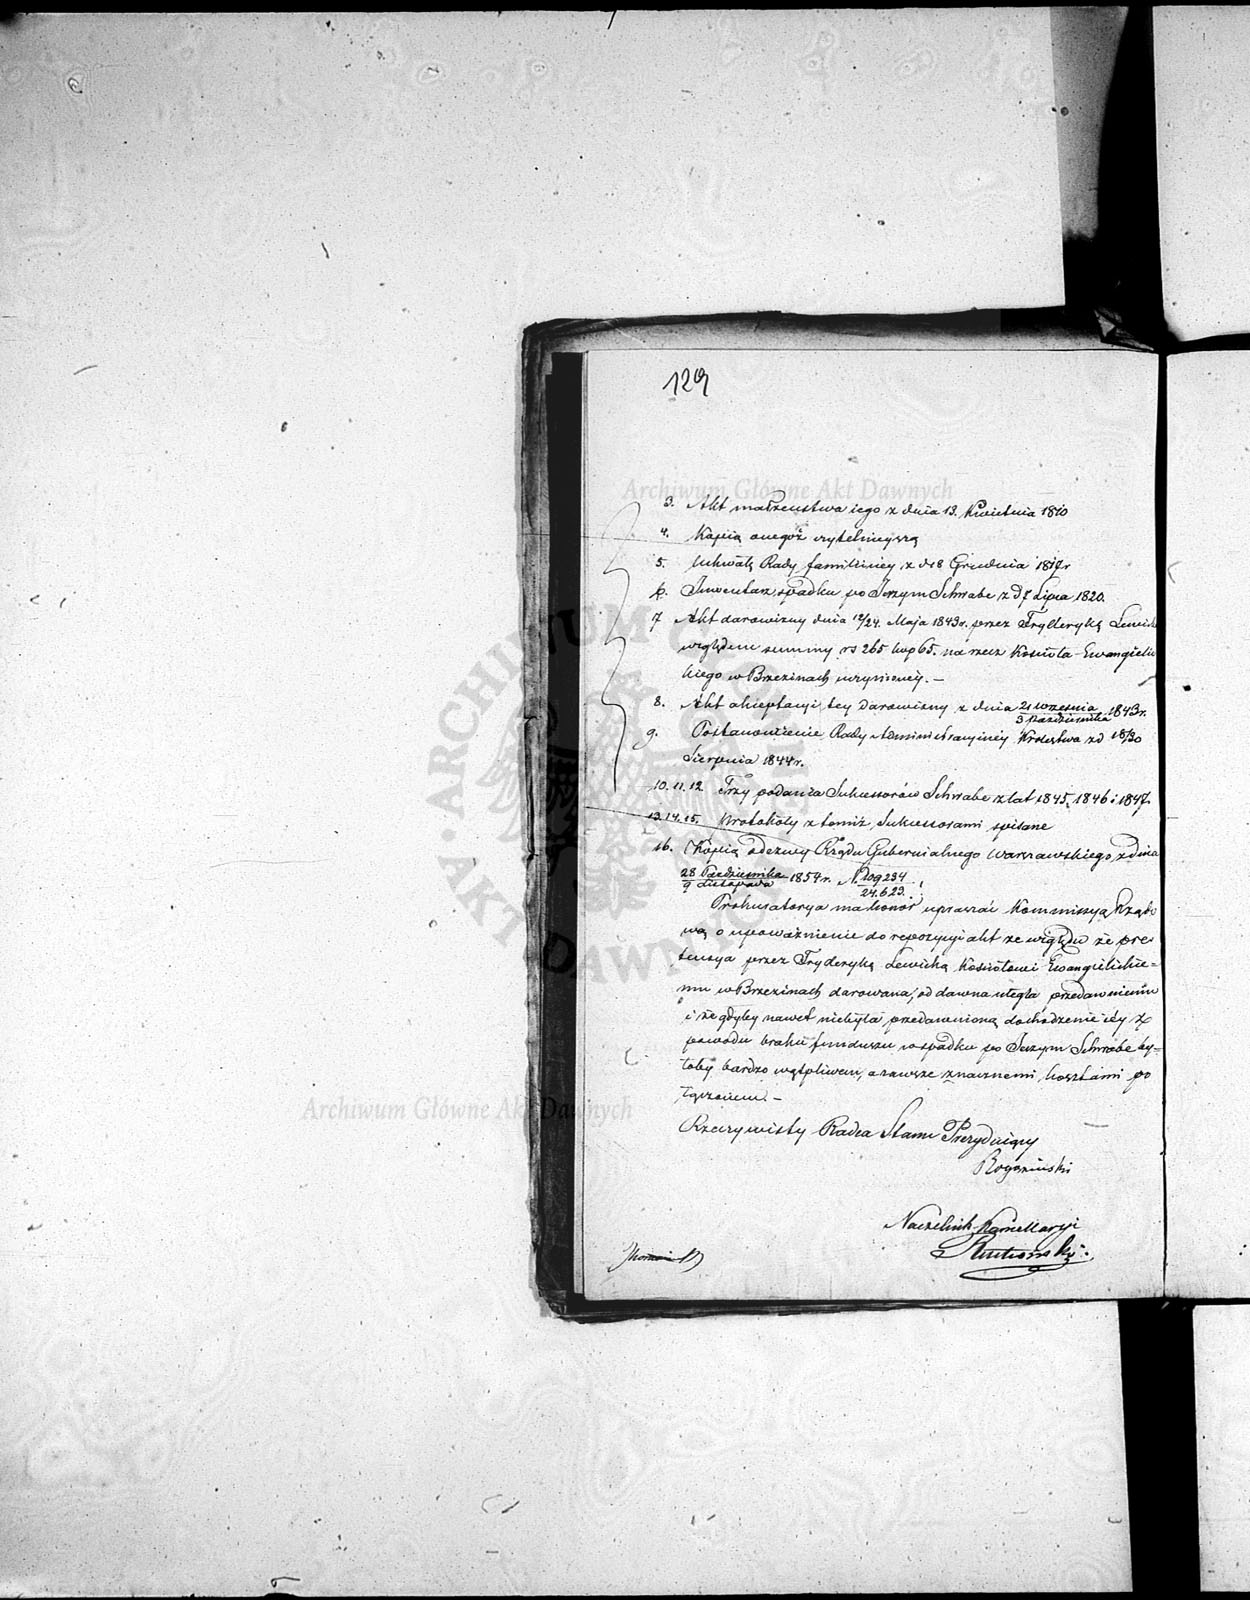 129
Archiwum Główne Akt Dawnych
3. Akt małżeństwa iego z dnia 13. Kwietnia 1810
4. Kopią onegoż czytelnieyszą
5. Uchwałę Rady familiiney z d 8 Grudnia 1817r
6. Inwentarz spadku po Jerzym Schwabe z d 7 Lipca 1820.
7 Akt darowizny dnia 12/24. Maja 1843r. przez Fryderykę Lewick
względem summy rs 265 kop 65. na rzecz Kościoła Ewangielic
kiego w Brzezinach uczynioney. —
8. Akt akceptacyi tey darowizny z dnia 21 Września / 3 Października 1843r.
9. Postanowienie Rady Administracyiney Królestwa z d 18/30
Sierpnia 1844r.
10. 11. 12 Trzy podania Sukcessorów Schwabe z lat 1845, 1846 i 1847.
13. 14. 15. Protokóły z temiż Sukcessorami spisane
16. Kopią odezwy Rządu Gubernialnego Warszawskiego z dnia
28 Października / 9 Listopada 1854r. N. 109234 / 24.623.
Prokuratorya ma honor upraszać Kommissyą Rządo
wą o upoważnienie do repozycyi akt ze względu że pre-
tensya przez Fryderykę Lewicką Kościołowi Ewangielickie-
mu w Brzezinach darowana, od dawna uległa przedawnieniu
i że gdyby nawet niebyła przedawnioną dochodzenie iéy z
powodu braku funduszu w spadku po Jerzym Schwabe by-
łoby bardzo wątpliwem, a zawsze znacznemi kosztami po
łączonem. —
Archiwum Główne Akt Dawnych
Rzeczywisty Radca Stanu Prezyduiący
Naczelnik Kancellaryi
ARCHIWUM GŁÓWNE AKT DAWNYCH